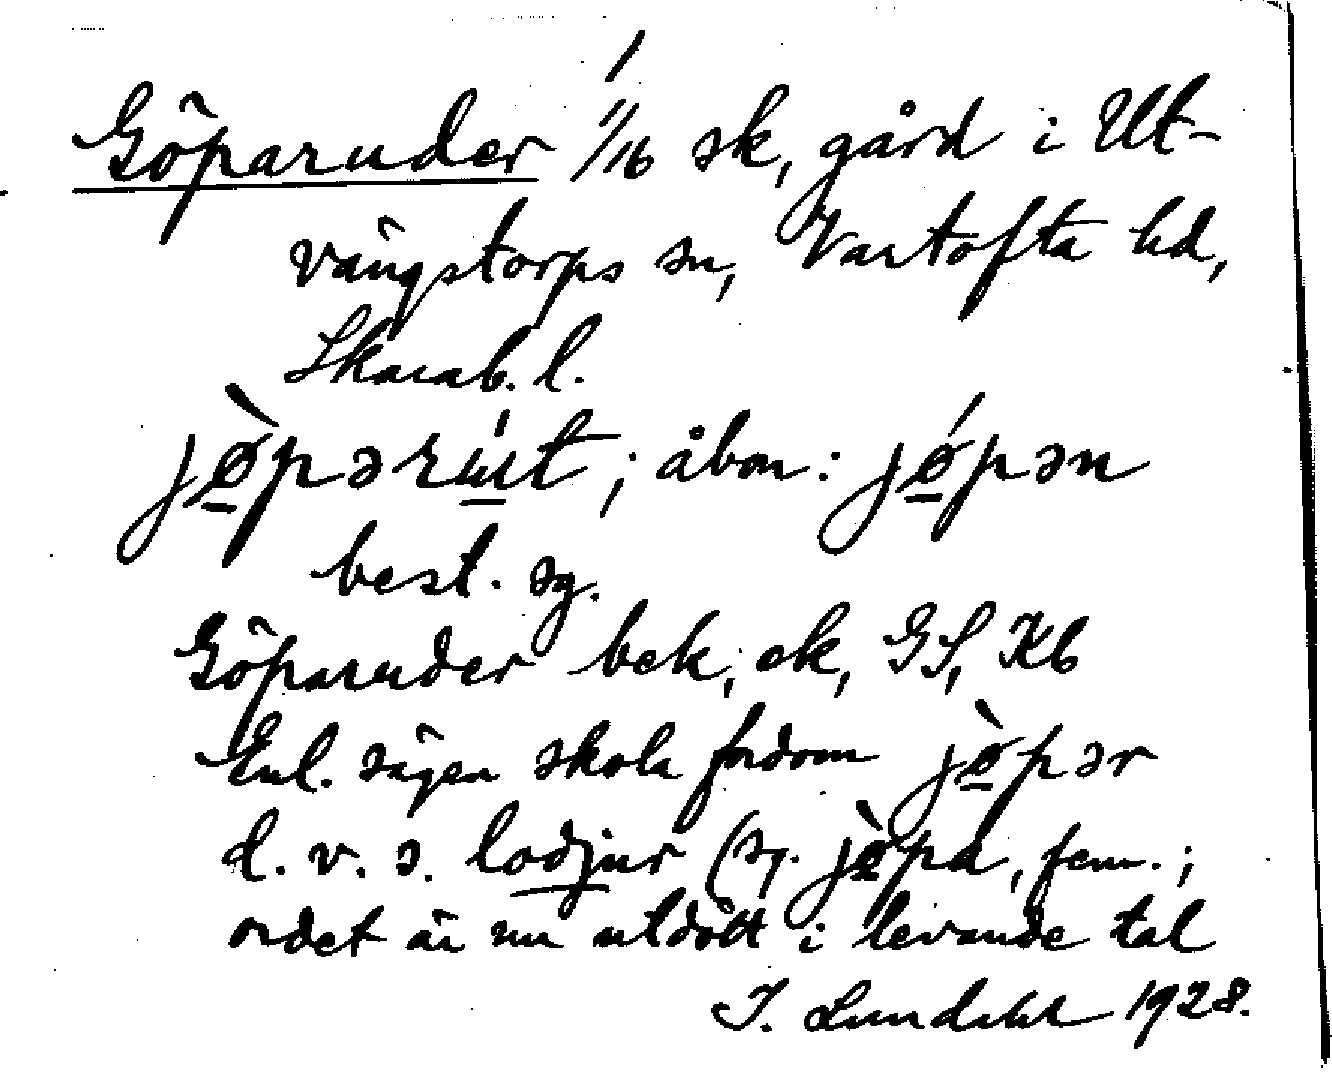 Göparuder 1/16 sk, gård i Ut-
vängstorps sn, Vartofta hd,
Skarab. l.
jø̀pərɯ́t; åbon: jǿpən
best. sg.
Göparuder bek, ek, GS, Kb
Enl. sägen skola fordom jø̀pər
d. v. s. lodjur (sg. jø̀pa, fem.;
ordet är nu utdött i levande tal
I. Lundahl 1928.